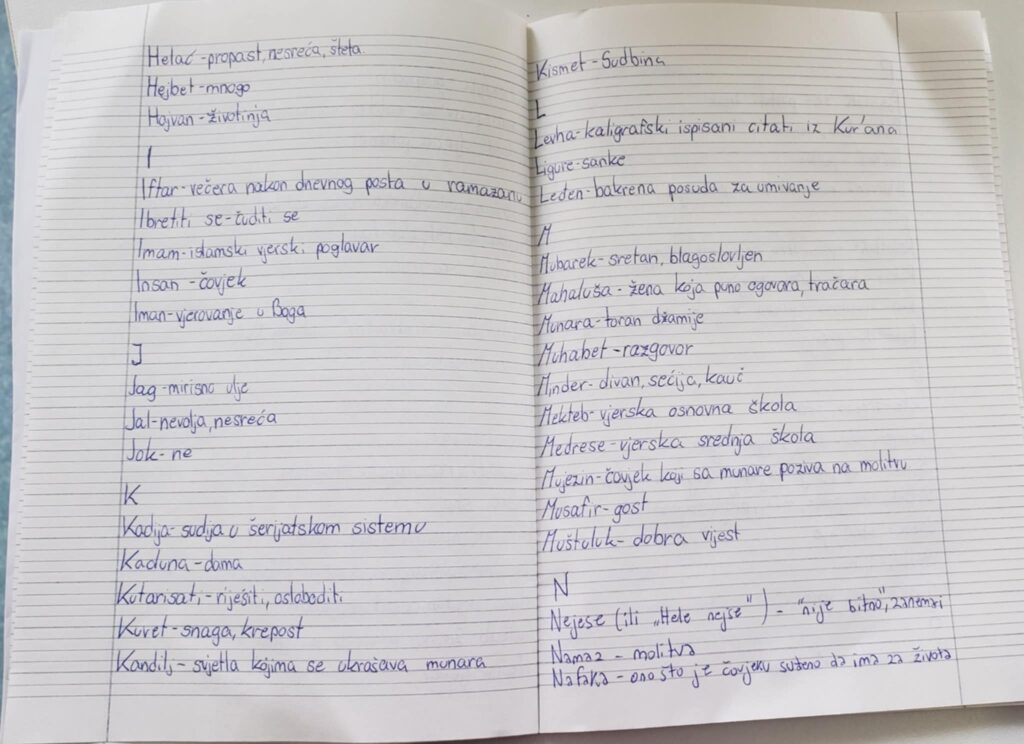 Helać-propast, nesreća, šteta
Hejbet-mnogo
Hajvan-životinja
I
Iftar-večera nakon dnevnog posta u ramazanu
Ibretiti se-čuditi se
Imam-islamski vjerski poglavar
Insan-čovjek
Iman-vjerovanje u Boga
J
Jag-mirisno ulje
Jal-nevolja, nesreća
Jok-ne
K
Kadija-sudija u šerijatskom sistemu
Kaduna-dama
Kutarisati-riješiti, osloboditi
Kuvet-snaga, krepost
Kandilj-svjetla kojima se ukrašava munara
Kismet-Sudbina
L
Levha-kaligrafski ispisani citati iz Kur'ana
Ligure-sanke
Leđen-bakrena posuda za umivanje
M
Mubarek-sretan, blagoslovljen
Mahaluša-žena koja puno ogovora, tračara
Munara-toran džamije
Muhabet-razgovor
Minder-divan, sećija, kauč
Mekteb-vjerska osnovna škola
Medrese-vjerska srednja škola
Mujezin-čovjek koji sa munare poziva na molitvu
Musafir-gost
Muštuluk-dobra vijest
N
Nejese (ili „Hele nejse") - "nije bitno", zanemari
Namaz - molitva
Nafaka - ono što je čovjeku suđeno da ima za života